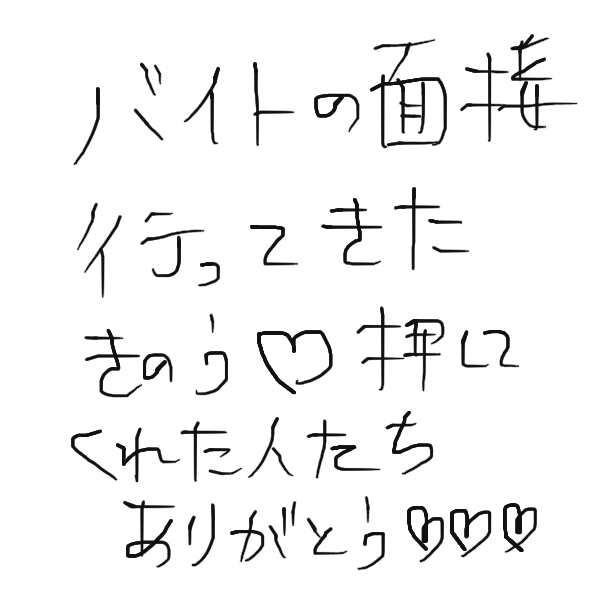 バイトの面接
行ってきた
きのう♡押して
くれた人たち
ありがとう♡♡♡